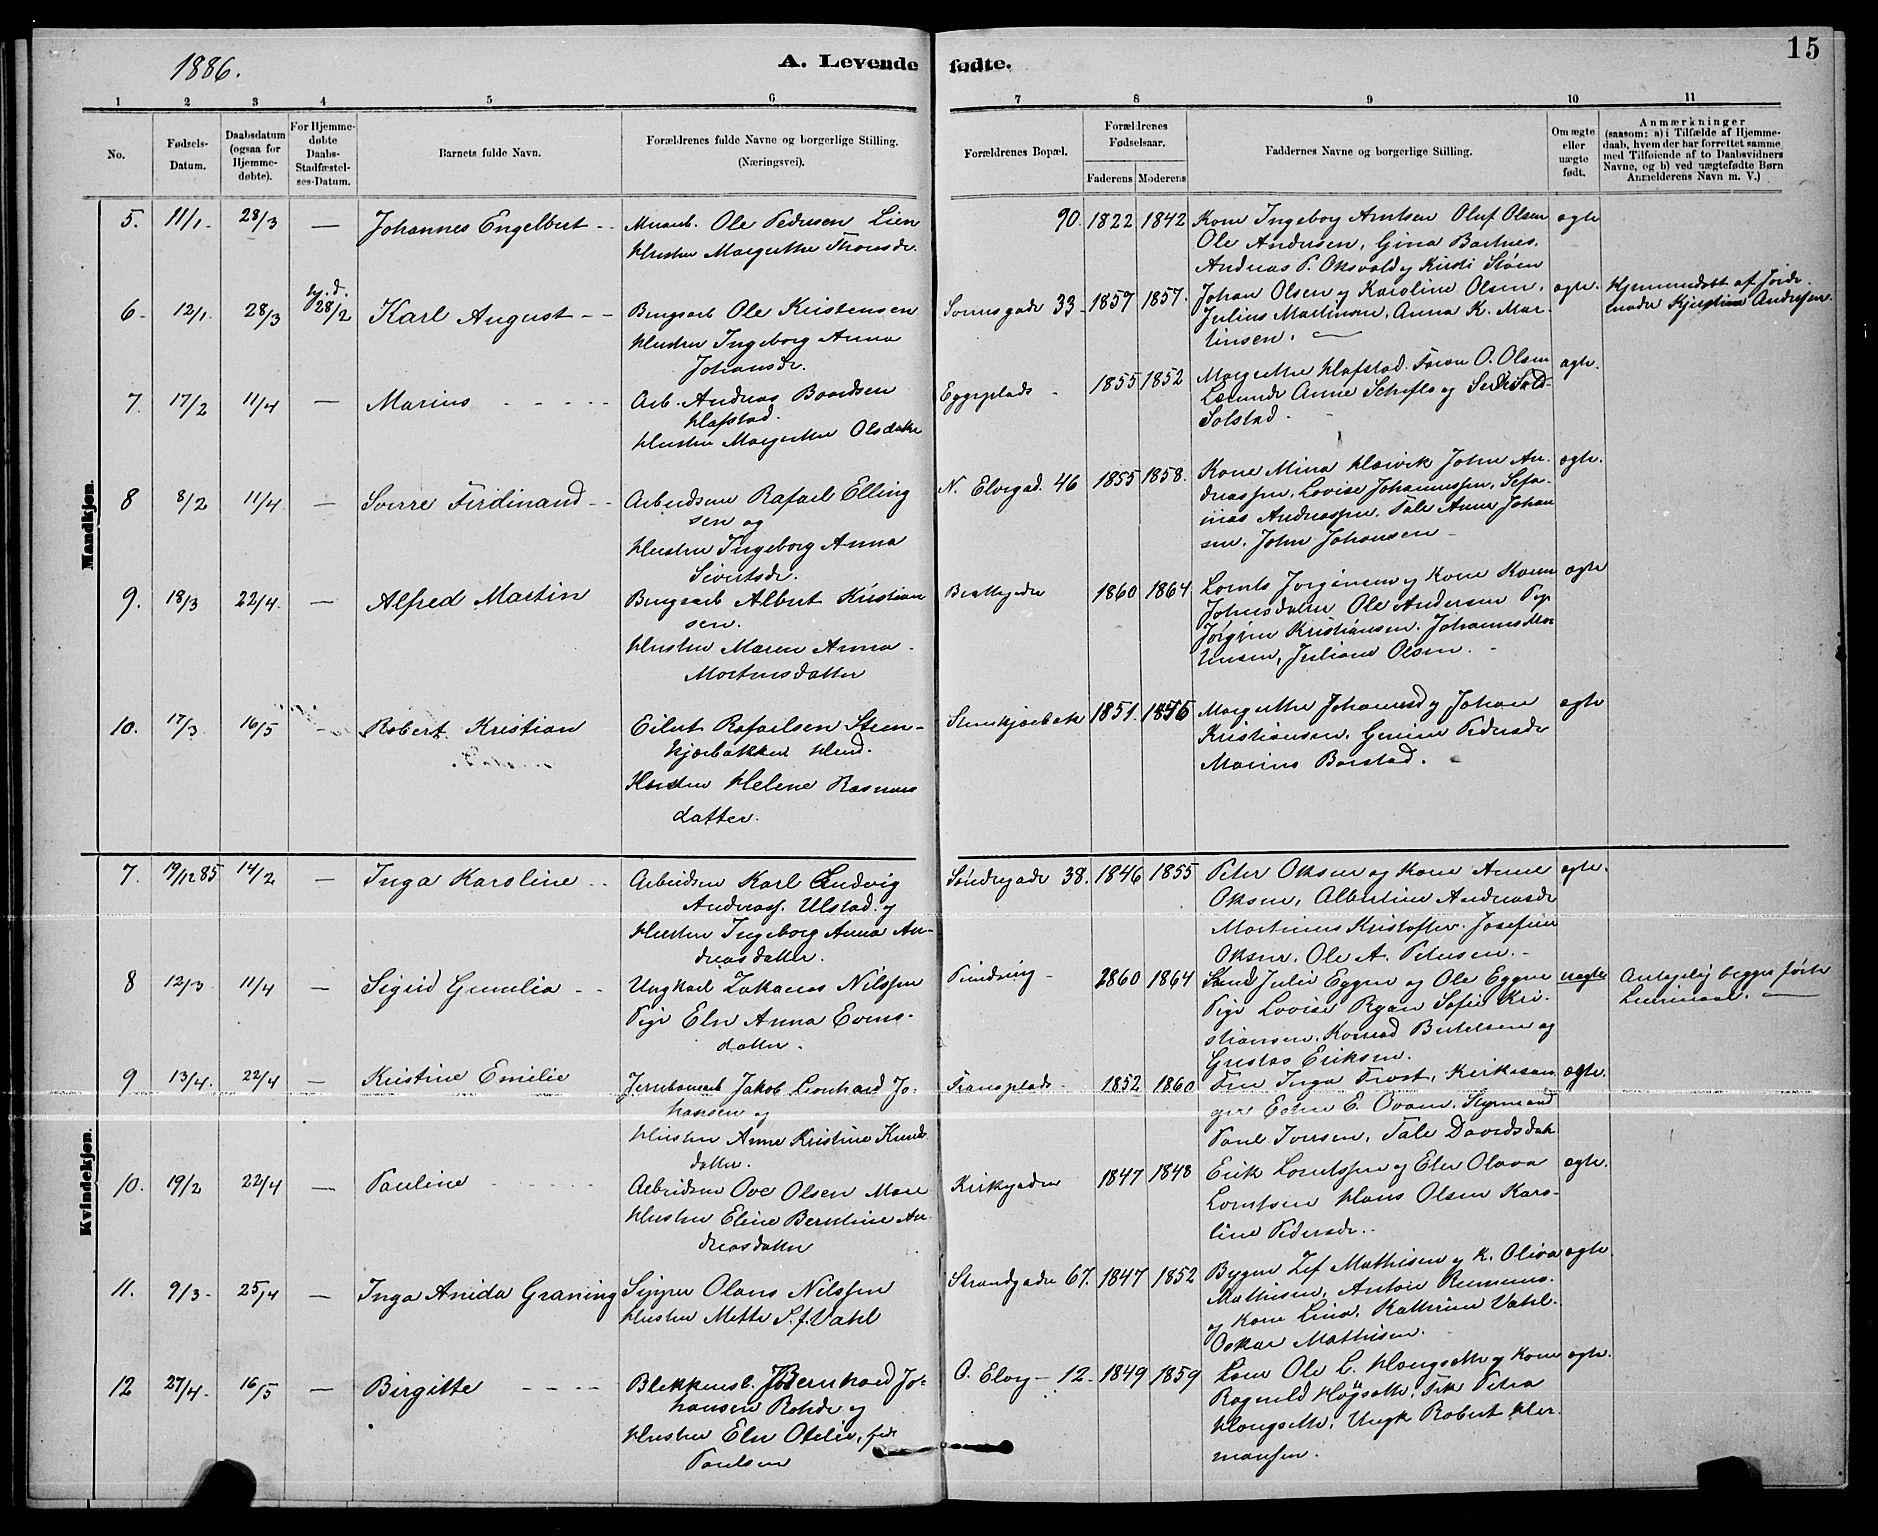 1886.
A. Levende
fødte.
15
1 2 3 4 5 6 7 8 9 10 11
No.
Fødsels-
Datum.
Daabsdatum
(ogsaa for
Hjemme-
døbte).
For Hjemme-
døbte
Daabs-
Stadfæstel-
ses-Datum.
Barnets fulde Navn.
Forældrenes fulde Navne og borgerlige Stilling.
(Næringsvei).
Forældrenes Bopæl.
Forældrenes
Fødselsaar.
Faderens Moderens
Faddernes Navne og borgerlige Stilling.
Om ægte
eller
uægte
født.
Anmærkninger
(saasom: a) i Tilfælde af Hjemme-
daab, hvem der har forrettet samme
med Tilføiende af to Daabsvidners
Navne, og b) ved uægtefødte Børn
Anmelderens Navn m. V.)
Mandkjøn.
5. 11/1. 28/3 — Johannes Engelbert
Ole Pedersen Lien
Hustru Margrethe Thomsdr.
90. 1822 1842
Kone Ingeborg Arntsen Oluf Olsen
Ole Andersen, Gina Bartnes.
Andreas P. Oksvold og Kirsti Støen
ægte
6. 12/1. 28/3 hj. d. 28/2 Karl August
Brugsarb Ole Kristensen
Hustru Ingeborg Anna
Johansdr.
33 1857 1857.
Johan Olsen og Karoline Olsen,
Julius Martinsen, Anna K. Mar-
tinsen.
ægte.
Hjemmedøbt af Jorde-
moder Kjerstine Andersen.
7. 17/2 11/4 — Marius
Arb. Andreas Baardsen
Hafstad.
Hustru Margrethe Olsdatter
Eggeplads 1855 1852
Margrethe Hafstad. O. Olsen
Anne Scheflo og
Solstad
ægte.
8 8/2 11/4 — Sverre Ferdinand
Arbeidsm Rafael Elling
sen og
Hustru Ingeborg Anna
Sivertsdr.
N. Elvegad. 46 1855 1858.
Kone Mina Hævik John An-
dreassen, Lovise Johannessen, Sefa-
nias Andreassen. Tale Anne Johan
sen. John Johansen
ægte.
9. 18/3 22/4. — Alfred Martin
Brugsarb Albert Kristian
sen.
Hustru Maren Anna
Mortensdatter
Brattgaden 1860 1864
Lornts Jørginsen og Kone Karen
Johnsdatter Ole Andersen Pige
Jørgine Kristiansen. Johannes Mor
tensen, Juliane Olsen.
ægte
10. 17/3 16/5 — Robert Kristian
Eilert Rafaelsen Steen-
kjærbakken
Hustru Helene Rasmus
datter.
Stenkjærbak 1851. 1856
Margrethe Johannesd og Johan
Kristiansen, Pedersdr
Marius Barstad.
ægte
Kvindekjøn.
7. 19/12 85 14/2 — Inga Karoline
Arbeidsm Karl Ludvig
Andreass. Ulstad. og
Hustru Ingeborg Anna An-
dreasdatter.
Søndregade 38. 1846 1855
Peter Oksen og Kone Anne
Oksen, Albertine Andreasdr
Martinus Kristoffer. Josefine
Oksen. Ole A. Petersen.
ægte.
8 12/3. 11/4 — Sigrid Gunelia
Ungkarl Zakarias Nilssen
Pige Elen Anna Evens-
datter.
2860 1864
Julie Eggen og Ole Eggen
Pige Lovise Ryan Sofie Kri-
stiansen, Konrad Bertelsen og
Gustav Eriksen.
uægte
Antagelig begges første
Leiermaal.
9 13/4. 22/4 — Kristine Emilie
Jernbanearb Jakob Leonhard Jo-
hansen og
Hustru Anne Kristine Knuds
datter.
Tranaplads 1852 1860
Fru Inga Frost, Kirkesan
ger Edin E. Ovam, Styrmand
Paul Iversen, Tale Davidsdatr
ægte.
10. 19/2 22/4 — Pauline
Arbeidsm Ove Olsen Mære
Hustru Eline Berntine An-
dreasdatter
Kirkegaden 1847 1848
Erik Lorntssen og Elen Olava
Lorntsen Hans Olsen Karo-
line Pedersdr.
ægte.
11. 9/3 25/4 — Inga Anida Graning
Skipper Olaus Nilssen
Hustru Mette S. f. Vahl
Strandgaden 67. 1847 1852
Mathisen og K. Oliva
Mathisen, Anton
og Kone Lina. Kathrine Vahl.
Oskar Mathisen.
ægte.
12 27/4. 16/5 — Birgitte
Blikkensl. Bernhard Jo-
hansen Rohde og
Hustru Elen Otelie, født
Paulsen
O. Elveg 12. 1849 1859
Ole L. Haugseth og Kone
Ragnild Haugseth, Frk Petra
Haugseth, Ungk Robert Her
mansen.
ægte.